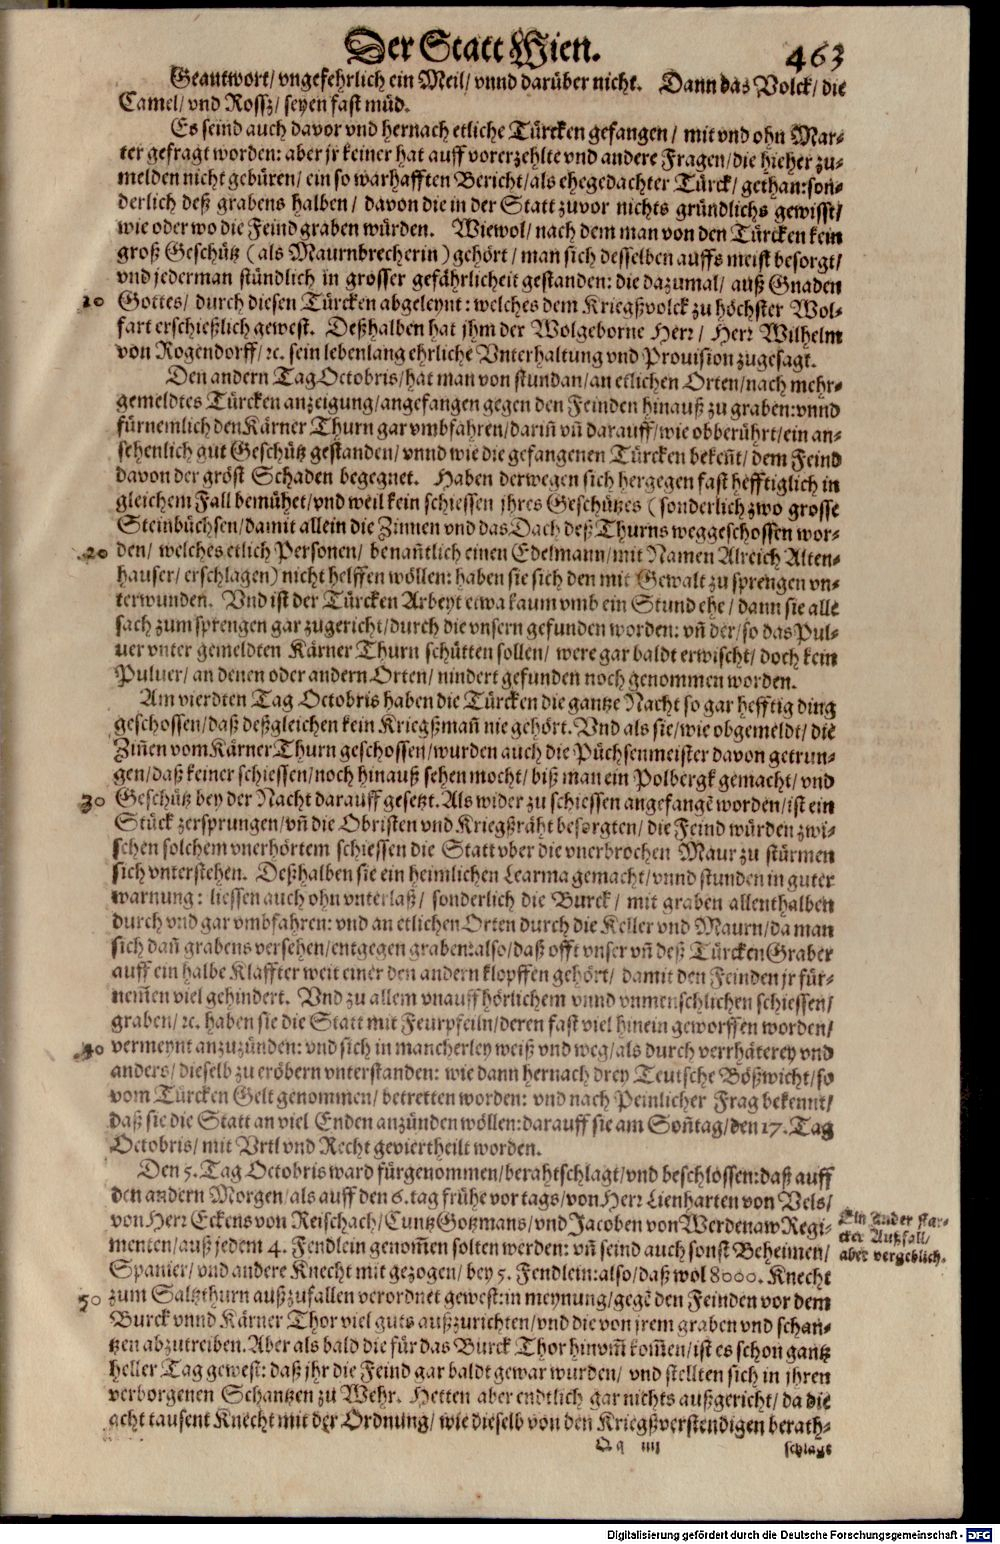 Der Statt Wien.
463
Geantwort/ vngefehrlich ein Meil/ vnnd darüber nicht. Dann das Volck/ die
Camel/ vnd Rossz/ seyen fast müd.
Es seind auch davor vnd hernach etliche Türcken gefangen/ mit vnd ohn Mar-
ter gefragt worden: aber jr keiner hat auff vorerzehlte vnd andere Fragen/ die hieher zu-
melden nicht gebüren/ ein so warhafften Bericht/ als ehegedachter Türck/ gethan: son-
derlich deß grabens halben/ davon die in der Statt zuvor nichts gründlichs gewisst/
wie oder wo die Feind graben würden. Wiewol/ nach dem man von den Türcken kein
groß Geschütz (als Maurnbrecherin) gehört/ man sich desselben auffs meist besorgt/
vnd jederman stündlich in grosser gefährlicheit gestanden: die dazumal/ auß Gnaden
10 Gottes/ durch diesen Türcken abgeleynt: welches dem Kriegßvolck zu höchster Wol-
fart erschießlich gewest. Deßhalben hat jhm der Wolgeborne Herr/ Herr Wilhelm
von Rogendorff/ ꝛc. sein lebenlang ehrliche Vnterhaltung vnd Provision zugesagt.
Den andern Tag Octobris/ hat man von stundan/ an etlichen Orten/ nach mehr-
gemeldtes Türcken anzeigung/ angefangen gegen den Feinden hinauß zu graben: vnnd
fürnemlich den Kärner Thurn gar vmbfahren/ darin̄ vn̄ darauff/ wie obberührt/ ein an-
sehenlich gut Geschütz gestanden/ vnnd wie die gefangenen Türcken beken̄t/ dem Feind
davon der gröst Schaden begegnet. Haben derwegen sich hergegen fast hefftiglich in
gleichem Fall bemühet/ vnd weil kein schiessen jhres Geschützes (sonderlich zwo grosse
Steinbüchsen/ damit allein die Zinnen vnd das Dach deß Thurns weggeschossen wor-
20 den/ welches etlich Personen/ benan̄tlich einen Edelmann/ mit Namen Alreich Alten-
hauser/ erschlagen) nicht helffen wöllen: haben sie sich den mit Gewalt zu sprengen vn-
terwunden. Vnd ist der Türcken Arbeyt etwa kaum vmb ein Stund ehe/ dann sie alle
sach zum sprengen gar zugericht/ durch die vnsern gefunden worden: vn̄ der/ so das Pul-
uer vnter gemeldten Kärner Thurn schütten sollen/ were gar baldt erwischt/ doch kein
Puluer/ an denen oder andern Orten/ nindert gefunden noch genommen worden.
Am vierdten Tag Octobris haben die Türcken die gantze Nacht so gar hefftig ding
geschossen/ daß deßgleichen kein Kriegßman̄ nie gehört. Vnd als sie/ wie obgemeldt/ die
Zin̄en vom Kärner Thurn geschossen/ wurden auch die Püchsenmeister davon getrun-
gen/ daß keiner schiessen/ noch hinauß sehen mocht/ biß man ein Polbergk gemacht/ vnd
30 Geschütz bey der Nacht darauff gesetzt. Als wider zu schiessen angefangē worden/ ist ein
Stück zersprungen/ vn̄ die Obristen vnd Kriegßräht besorgten/ die Feind würden zwi-
schen solchem vnerhörtem schiessen die Statt vber die vnerbrochen Maur zu stürmen
sich vnterstehen. Deßhalben sie ein heimlichen Learma gemacht/ vnnd stunden in guter
warnung: liessen auch ohn vnterlaß/ sonderlich die Burck/ mit graben allenthalben
durch vnd gar vmbfahren: vnd an etlichen Orten durch die Keller vnd Maurn/ da man
sich dan̄ grabens versehen/ entgegen graben: also/ daß offt vnser vn̄ deß Türcken Graber
auff ein halbe Klaffter weit einer den andern klopffen gehört/ damit den Feinden jr für-
nem̄en viel gehindert. Vnd zu allem vnauffhörlichem vnnd vnmenschlichen schiessen/
graben/ ꝛc. haben sie die Statt mit Feurpfeiln/ deren fast viel hinein geworffen worden/
40 vermeynt anzuzünden: vnd sich in mancherley weiß vnd weg/ als durch verrhäterey vnd
anders/ dieselb zu eröbern vnterstanden: wie dann hernach drey Teutsche Bößwicht/ so
vom Türcken Gelt genommen/ betretten worden: vnd nach Peinlicher Frag bekennt/
daß sie die Statt an viel Enden anzünden wöllen: darauff sie am Son̄tag/ den 17. Tag
Octobris/ mit Vrtl vnd Recht geviertheilt worden.
Den 5. Tag Octobris ward fürgenommen/ berahtschlagt/ vnd beschlossen: daß auff
den andern Morgen/ als auff den 6. tag frühe vor tags/ von Herr Lienharten von Vels/
von Herr Eckens von Reischach/ Cuntz Gotzmans/ vnd Jacoben von Werdenaw Regi-
menten/ auß jedem 4. Fendlein genom̄en solten werden: vn̄ seind auch sonst Beheimen/
Spanier/ vnd andere Knecht mit gezogen/ bey 5. Fendlein: also/ daß wol 8000. Knecht
50 zum Saltzthurn außzufallen verordnet gewest: in meynung/ gegē den Feinden vor dem
Burck vnnd Kärner Thor viel guts außzurichten/ vnd die von jrem graben vnd schan-
tzen abzutreiben. Aber als bald die für das Burck Thor hinvm̄ kom̄en/ ist es schon gantz
heller Tag gewest: daß jhr die Feind gar baldt gewar wurden/ vnd stellten sich in jhren
verborgenen Schantzen zu Wehr. Hetten aber endtlich gar nichts außgericht/ da die
acht tausent Knecht mit der Ordnung/ wie dieselb von den Kriegßverstendigen berath-
Ein ander star-
cker Außfall/
aber vergeblich.
Qq iiii
schlagt
Digitalisierung gefördert durch die Deutsche Forschungsgemeinschaft - DFG